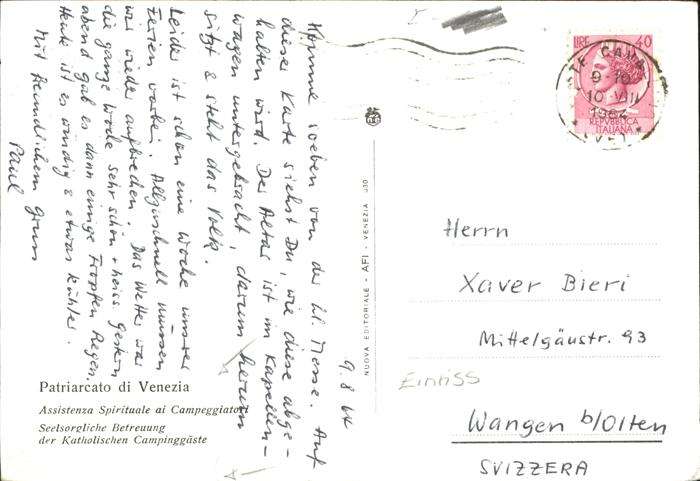 9.8.64
Komme soeben von der hl. Messe. Auf
dieser Karte siehst Du, wie diese abge-
halten wird. Der Altar ist im Kapellen-
wagen untergebracht, darum herum
sitzt & steht das Volk.
Leider ist schon eine Woche unserer
Ferien vorbei. Allzuschnell müssen
wir wieder aufbrechen. Das Wetter war
die ganze Woche sehr schön & heiss. Gestern
abend gab es dann einige Tropfen Regen.
Heute ist es windig & etwas kühler.
Mit freundlichem Gruss
Paul
Patriarcato di Venezia
Assistenza Spirituale ai Campeggiatori
Seelsorgliche Betreuung
der Katholischen Campinggäste
NUOVA EDITORIALE - AFI - VENEZIA
LIRE 40
REPUBBLICA
ITALIANA
9-10
10 VIII
1964
Herrn
Xaver Bieri
Mittelgäustr. 93
Eintiss
Wangen b/Olten
SVIZZERA